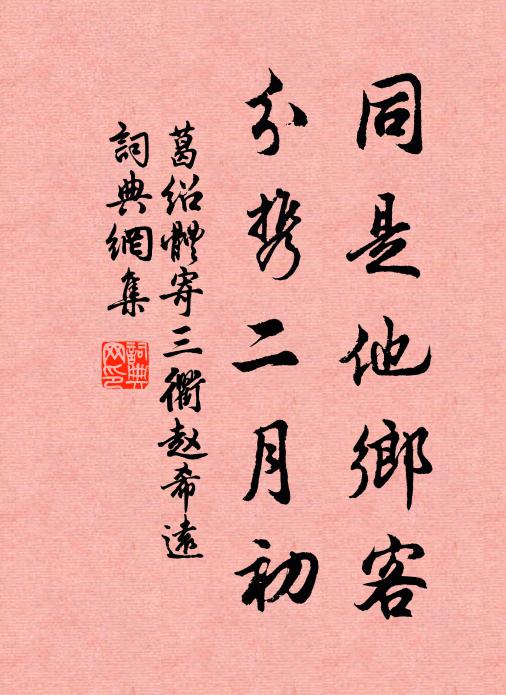 同是他鄉客
分携二月初
葛紹體寄三衢赵希遠
詞典網集
詞典網印